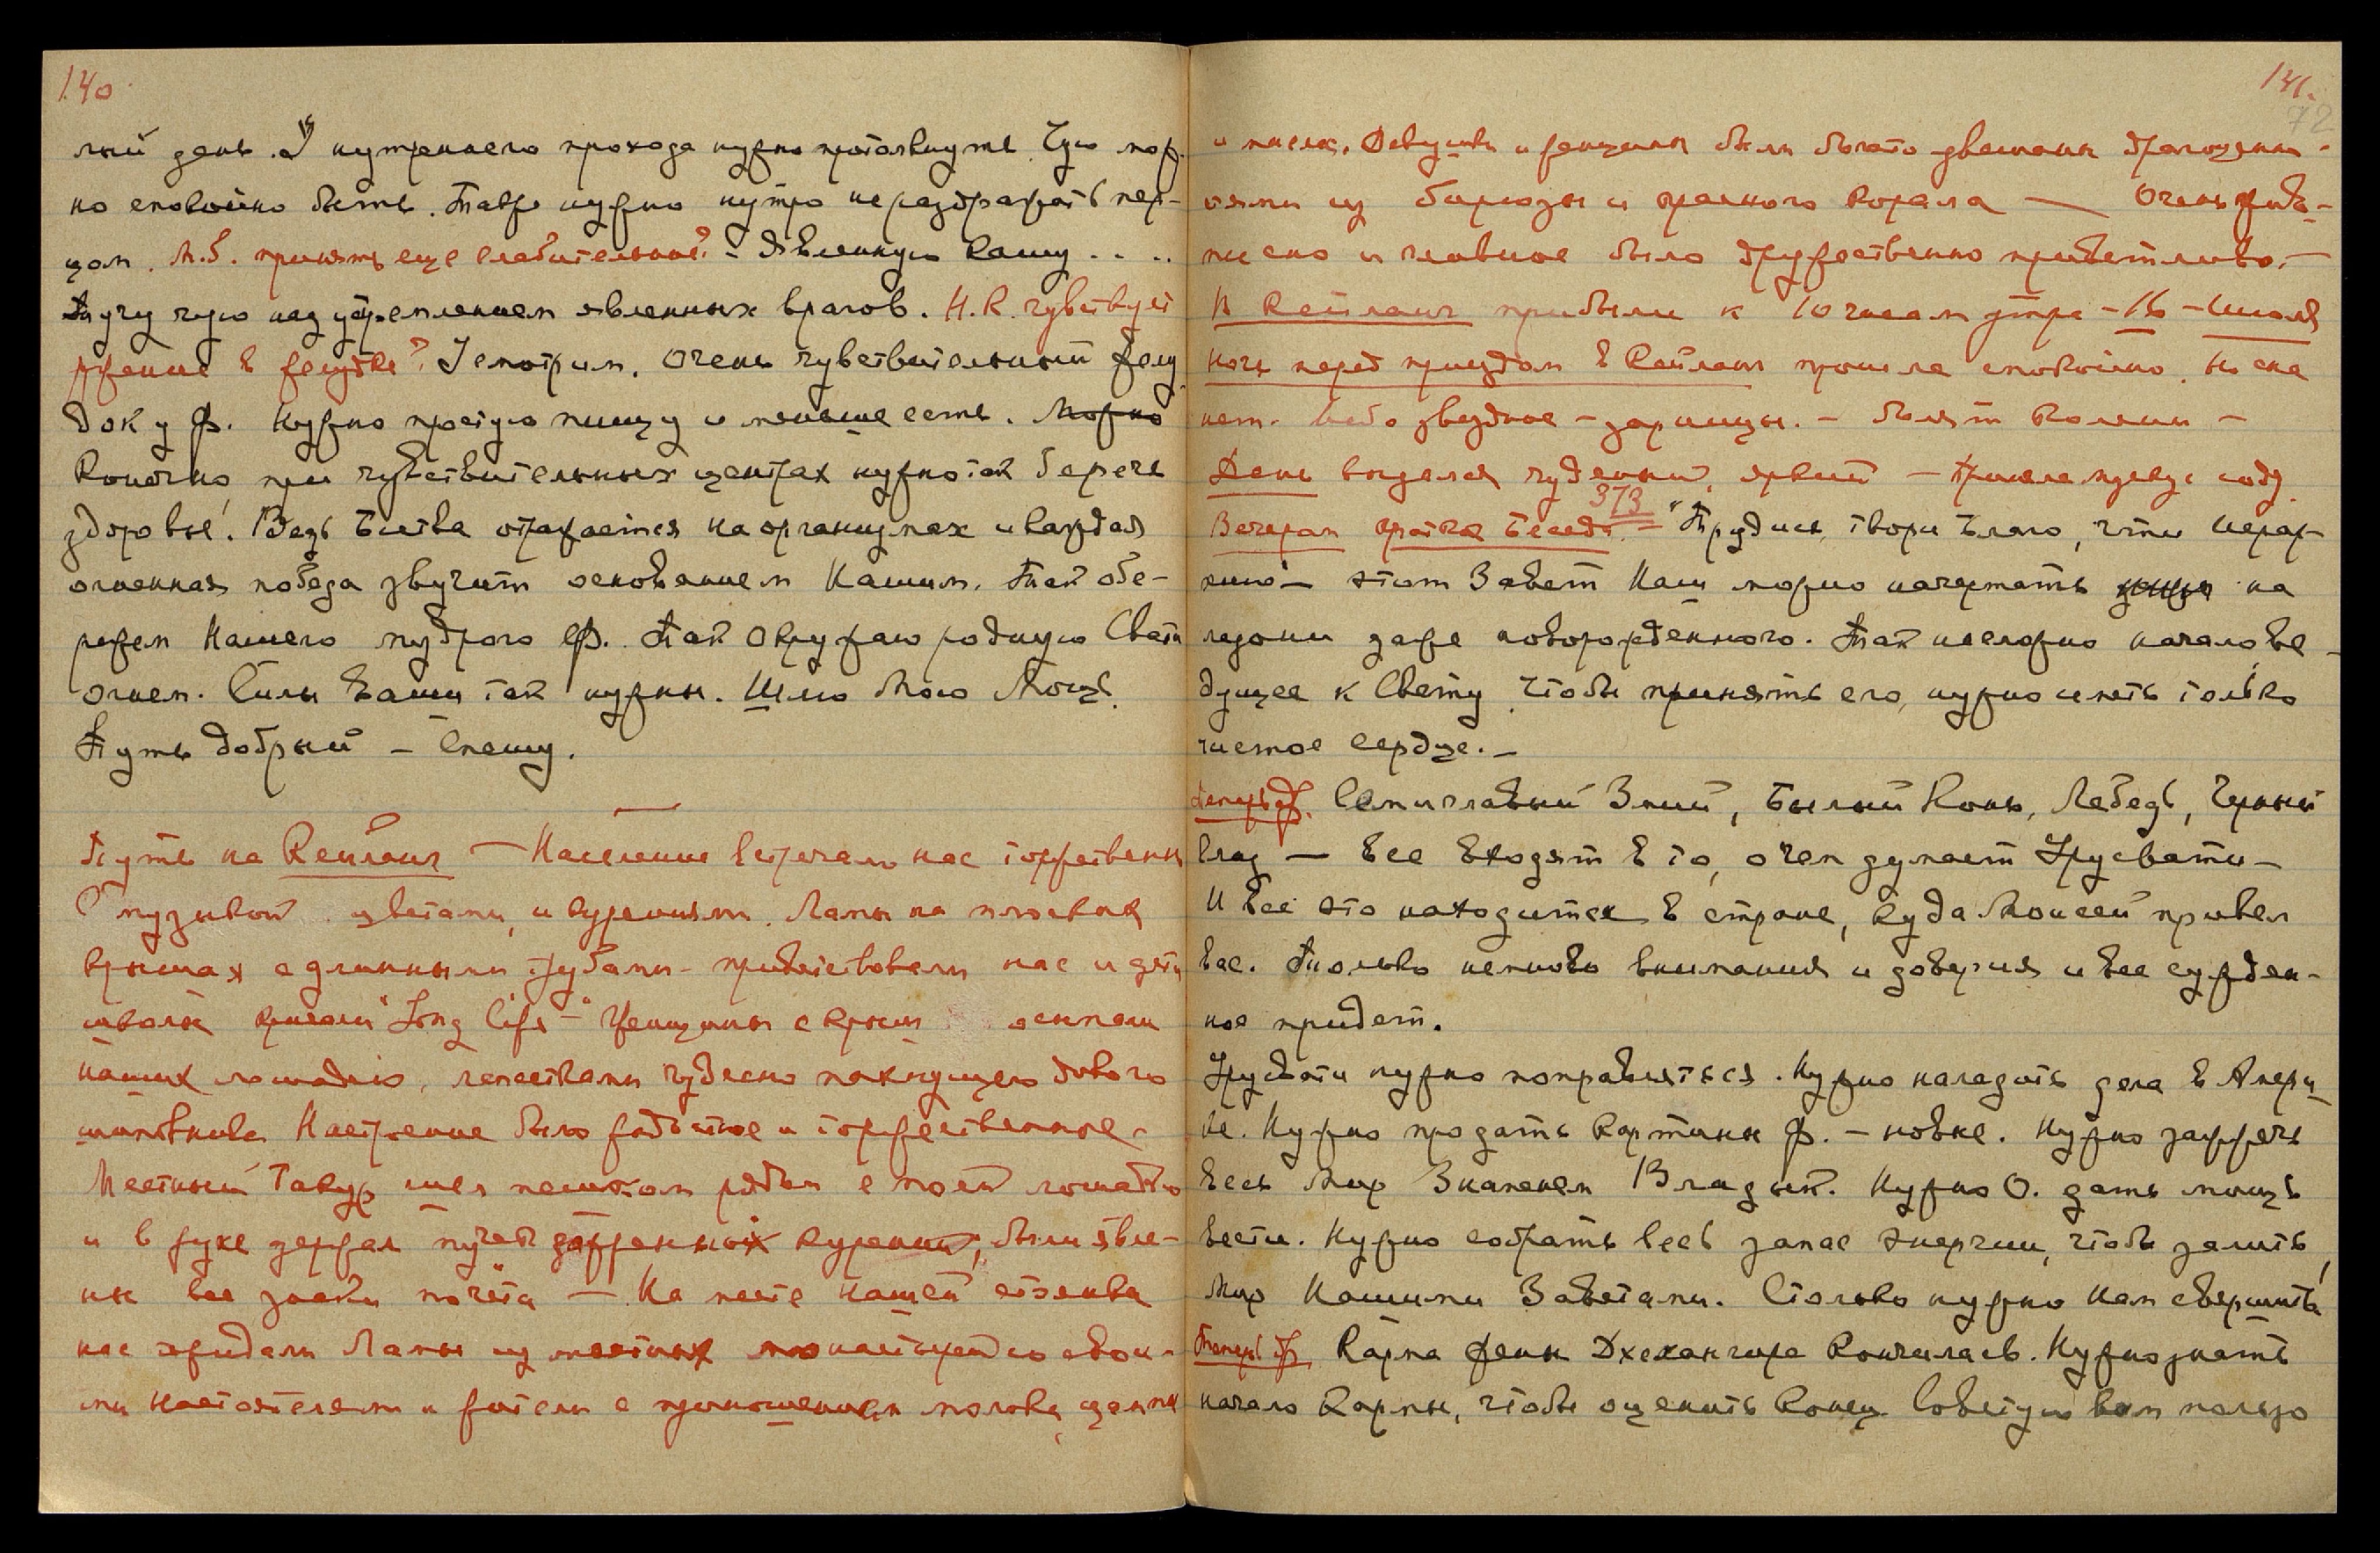 140
лый день. У нутреннего прохода нужно протолкнуть. Чую мож-
но спокойно быть. Также нужно нутро не раздражать пер-
цом. М.б. принять еще слабительное? – овсянную кашу . . . .
Тучу чую над устремлением явленных врагов. Н.К. чувствует
жжение в желудке? Усмотрим. Очень чувствительный желу
док у Ф. Нужно простую пищу и меньше есть. Можно
Конечно, при чувствительных центрах нужно так беречь
здоровье! Ведь Битва отражается на организмах и каждая
огненная победа звучит основанием Нашим. Так обе-
режем Нашего мудрого Ф. Так окружаю родную Свати
огнем. Силы ваши так нужны. Шлю Мою Мощь.
Путь добрый – Спешу.
Путь на Кейланг – Население встречало нас торжественн
С музыкой, цветами, и курениями. Ламы на плоских
крышах с длинными трубами – приветствовали нас и дети
школы кричали "Long life" – Женщины с крыш осыпали
наших лошадей, лепестками чудесно пахнущего дикого
шиповника. Настроение было радостное и торжественное –
Местный Такур шел пешком рядом с моей лошадью
и в руке держал пучок зажженных курений, были явле-
ны все знаки почета – На месте нашей стоянки
нас ожидали Ламы из местных монастырей со свои-
ми настоятелями и жители с приношением молока, цампы
141.
72
и масла. Девушки и женщины были богато увешаны драгоценн-
остями из бирюзы и красного коралла – Очень живо-
писно и главное было дружественно приветливо. –
В Кейланг прибыли к 10 часам утра – 16 – Июля
Ночь перед приездом в Кейланг прошла спокойно. Но сна
нет. Небо звездное – зарницы. – Болят колени –
День выдался чудесный, яркий –
373
Вечером краткая Беседа. – "Трудись, твори Благо, чти Иерар-
хию – этот Завет Наш можно начертать на
ладони даже новорожденного. Так несложно начало, ве-
дущее к Свету. Чтобы принять его, нужно иметь только
чистое сердце. –
Теперь Ф. Семиглавый Змий, Белый Конь, Лебедь, Чуный
Клад – все входят в то, о чем думает Урусвати –
И все это находится в стране, куда Моисей привел
вас. Только немного внимания и доверия и все сужден-
ное придет.
Урусвати нужно поправляться. Нужно наладить дела в Амери
ке. Нужно продать картины Ф. – новые. Нужно зажечь
весь Мир Знаменем Владык. Нужно О. дать мощь
вести. Нужно собрать весь запас энергии, чтобы залить
Мир Нашими Заветами. Столько нужно нам свершить
Теперь Ф. Карма жены Джехангира кончилась. Нужно знать
начало Кармы, чтобы оценить конец. Советую вам мользо